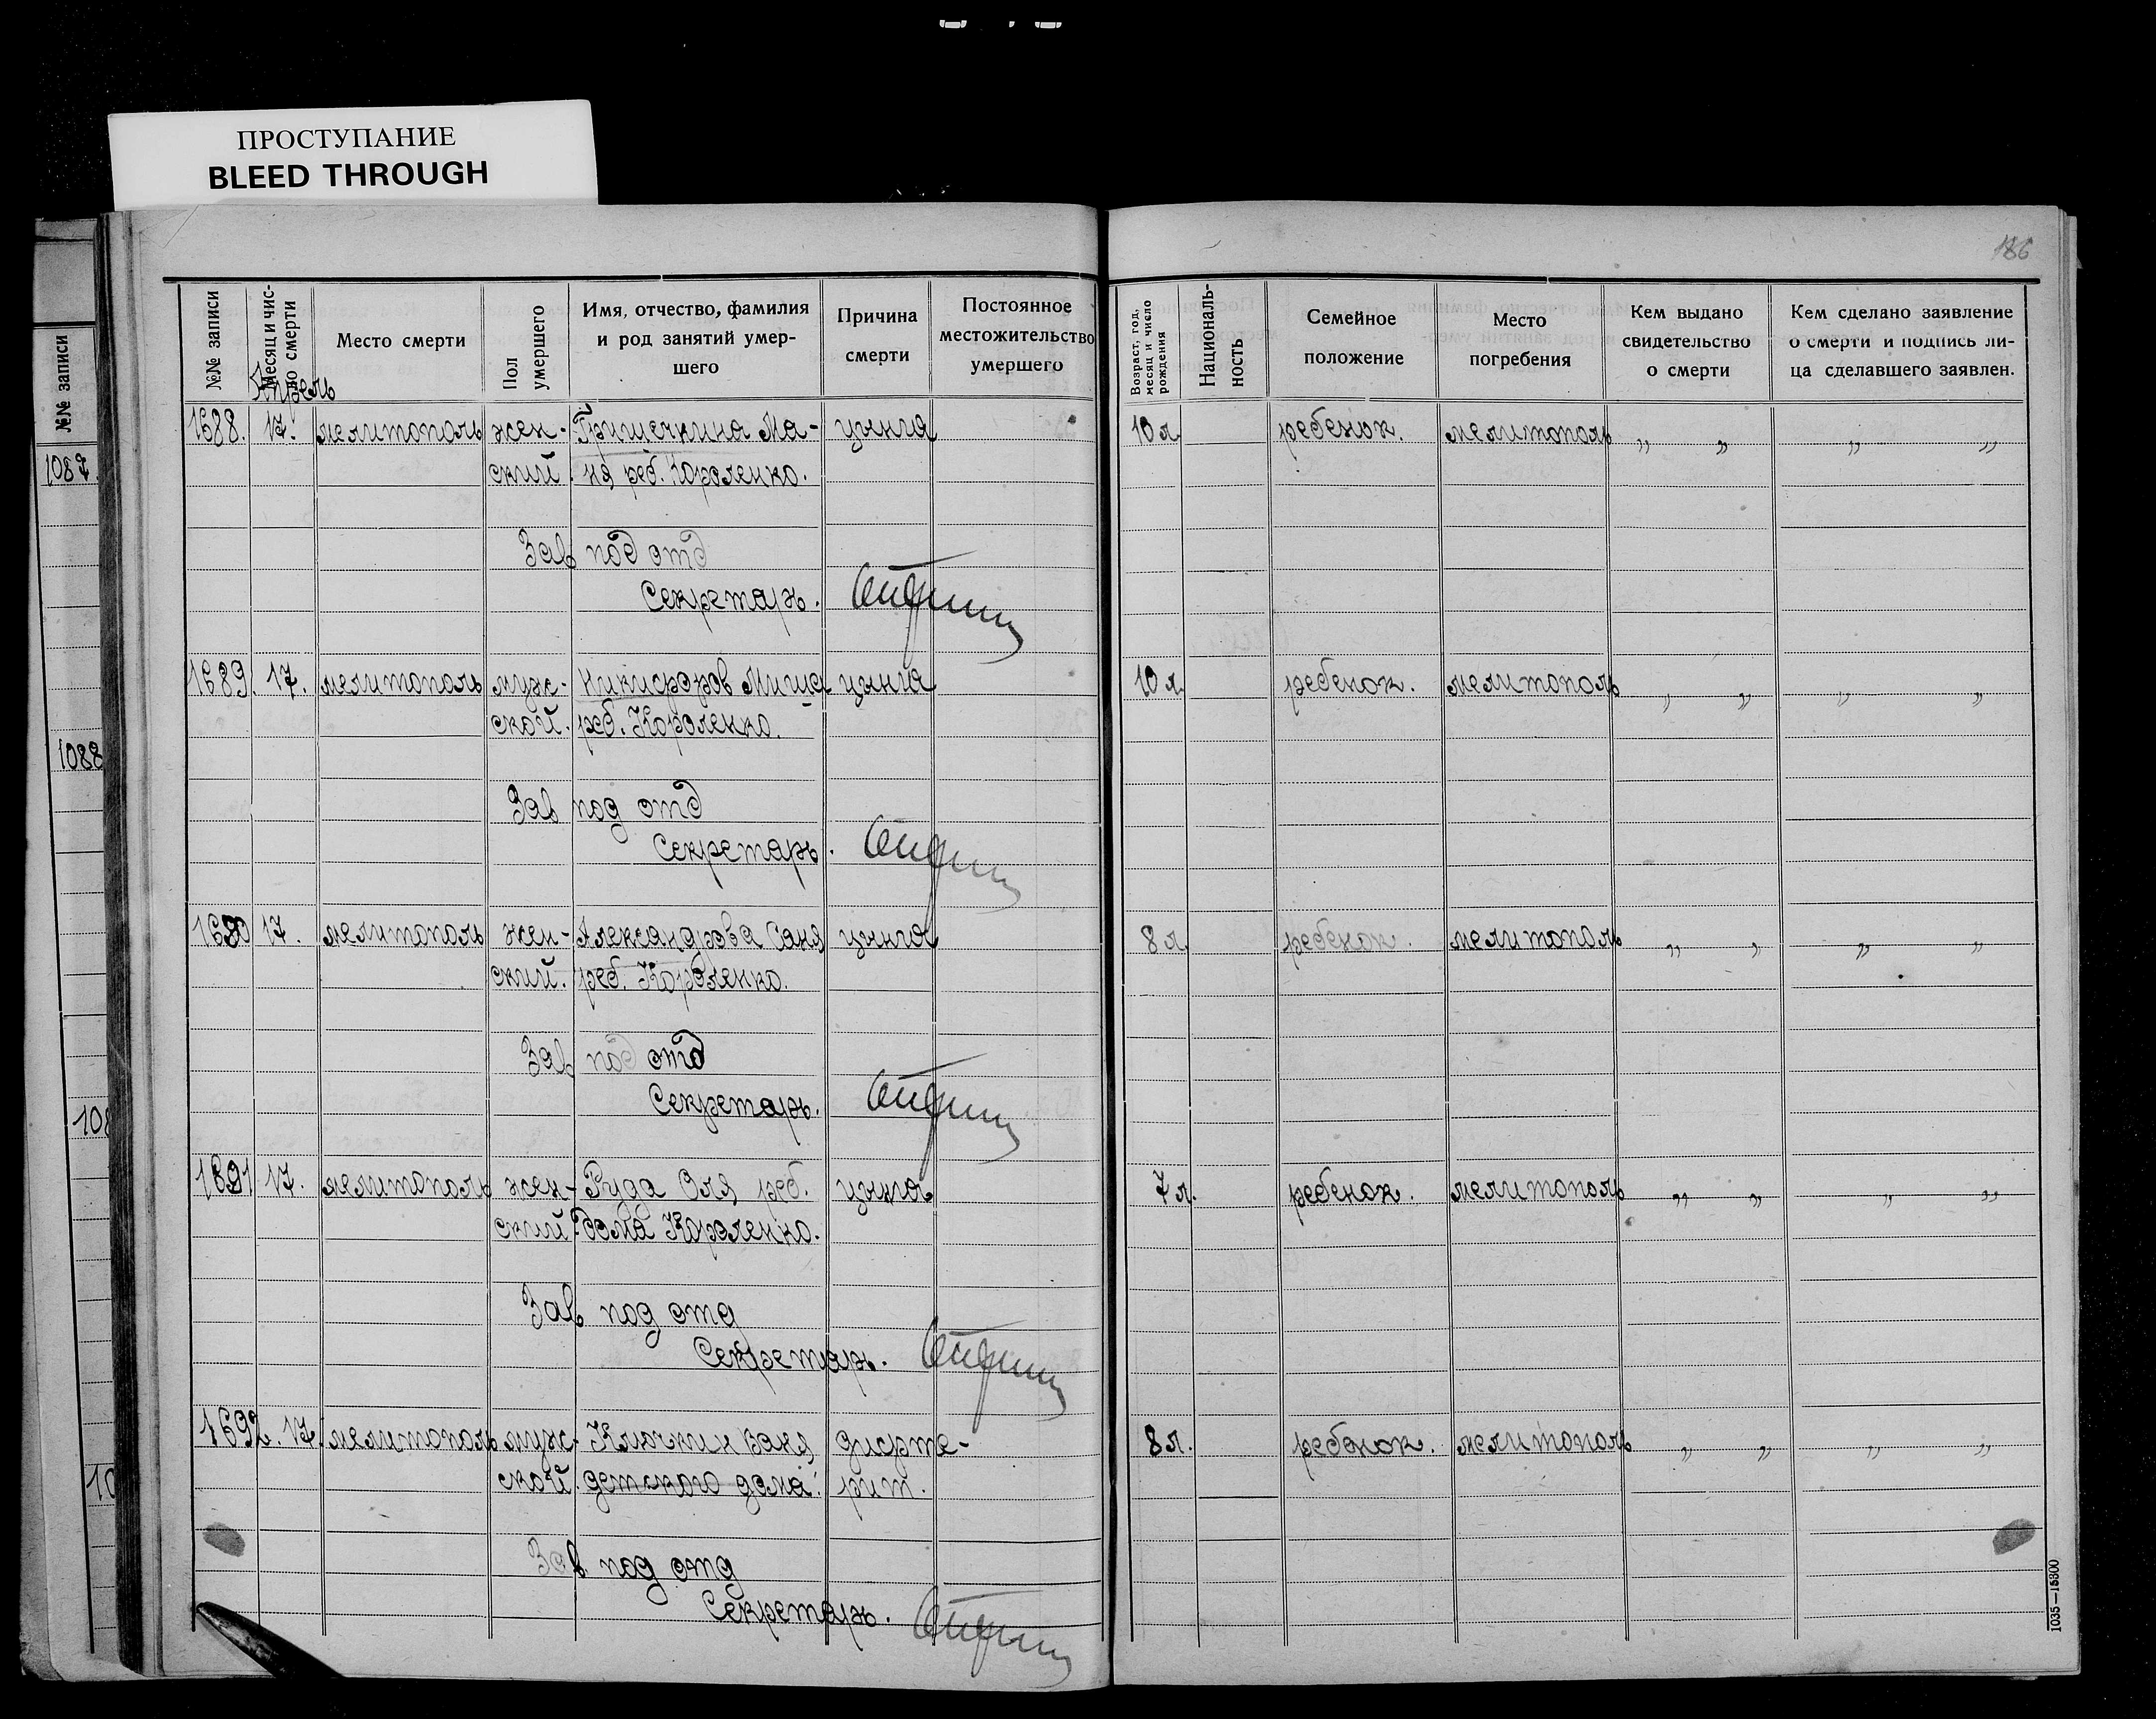 ПРОСТУПАНИЕ
BLEED THROUGH
186
№№ записи
1087.
1088
108
10
№№ записи
Месяц и чис-
ло смерти
Место смерти
Пол
умершего
Имя, отчество, фамилия
и род занятий умер-
шего
Причина
смерти
Постоянное
местожительство
умершего
Возраст, год,
месяц и число
рождения
Националь-
ность
Семейное
положение
Место
погребения
Кем выдано
свидетельство
о смерти
Кем сделано заявление
о смерти и подпись ли-
ца сделавшего заявлен.
Апрель
1688. 17. мелитополь жен- Гришечкина Ма- цынга 10 л. ребенок. мелитополь „ „ „ „
ский. ня реб. Короленко.
Зав под отд
Секретарь.
1689. 17. мелитополь муж- Никифоров Миша цынга 10 л. ребенок. мелитополь „ „ „ „
ской. реб. Короленко.
Зав под отд
Секретарь.
1690 17. мелитополь жен- Александрова Саня цынга 8 л. ребенок. мелитополь „ „ „ „
ский. реб. Короленко.
Зав под отд
Секретарь.
1691 17. мелитополь жен- Руда Оля реб. цынга 7 л. ребенок. мелитополь „ „ „ „
ский. дома Короленко.
Зав под отд
Секретарь.
1692. 17. мелитополь муж- Ключкин Ваня дифте- 8 л. ребенок. мелитополь „ „ „ „
ской. детского дома. рит.
Зав под отд
Секретарь.
1035—15300